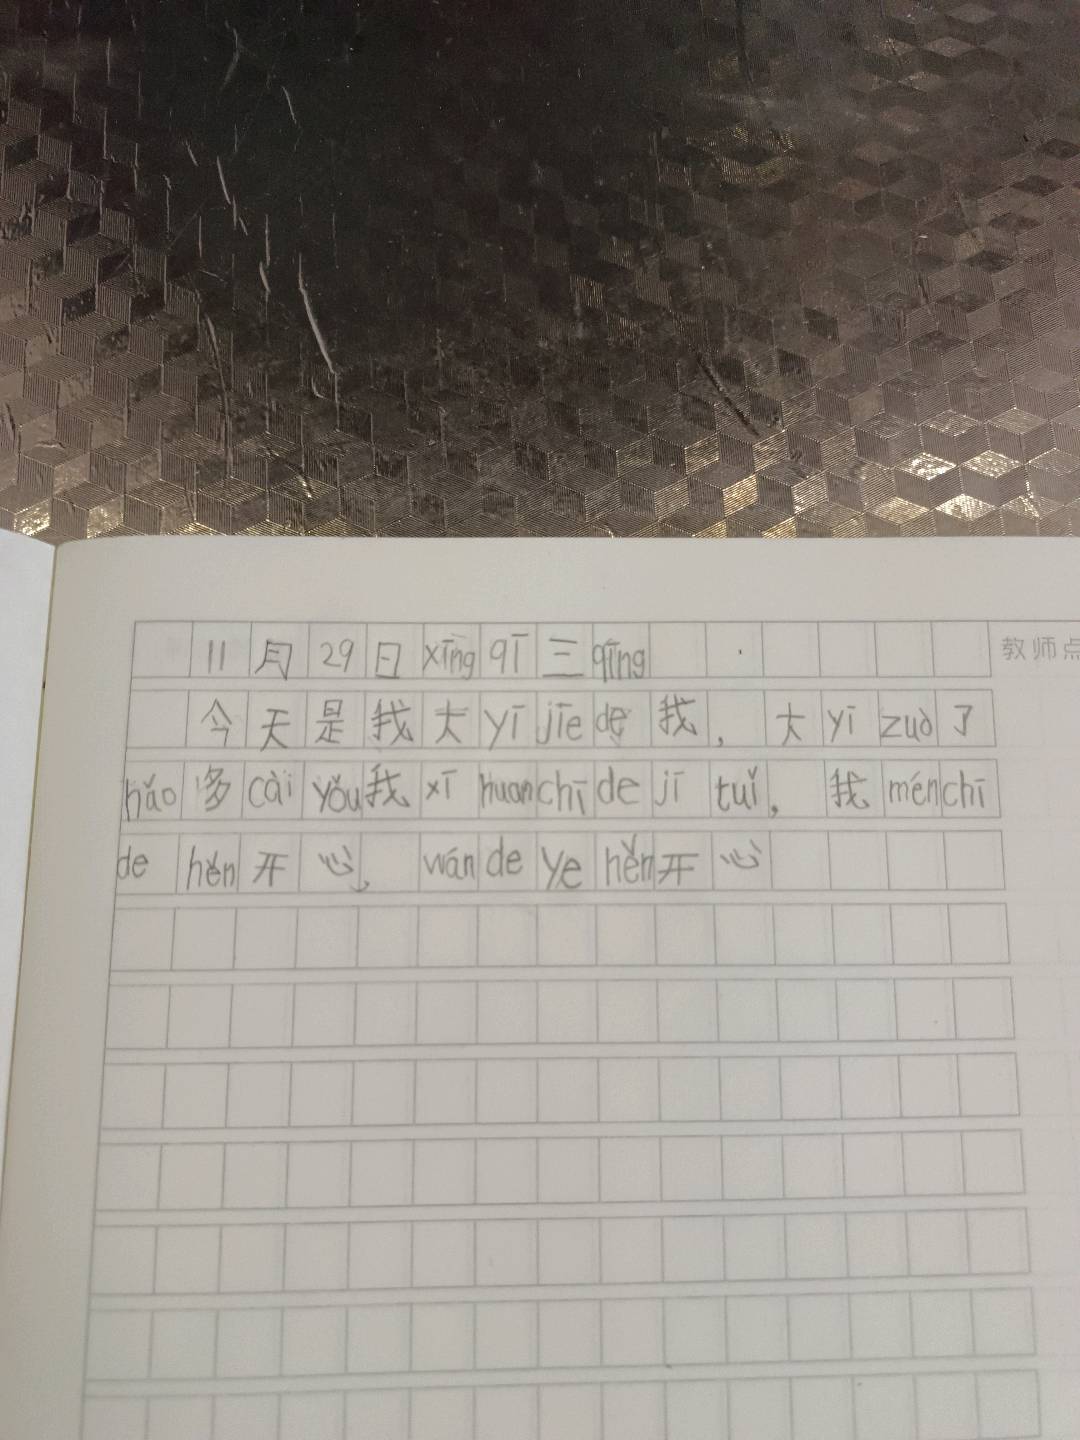 11月29日xīng qī三qīng
教师点
今天是我大yī jiē de我，大yī zuò了
hǎo多cài yǒu我xī huan chī de jī tuǐ，我mén chī
de hěn开心，wán de ye hěn开心